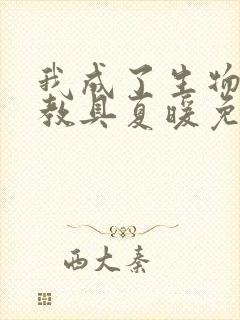 我成了生物
教具夏暖免
西大秦